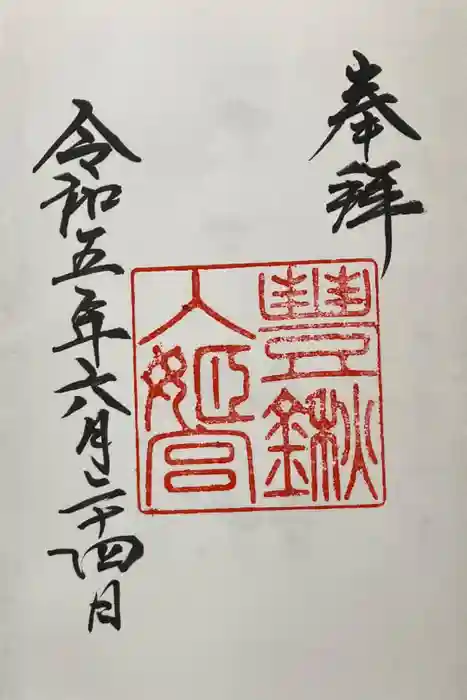 奉拝
豐鍬
入姫宮
令和五年六月二十四日